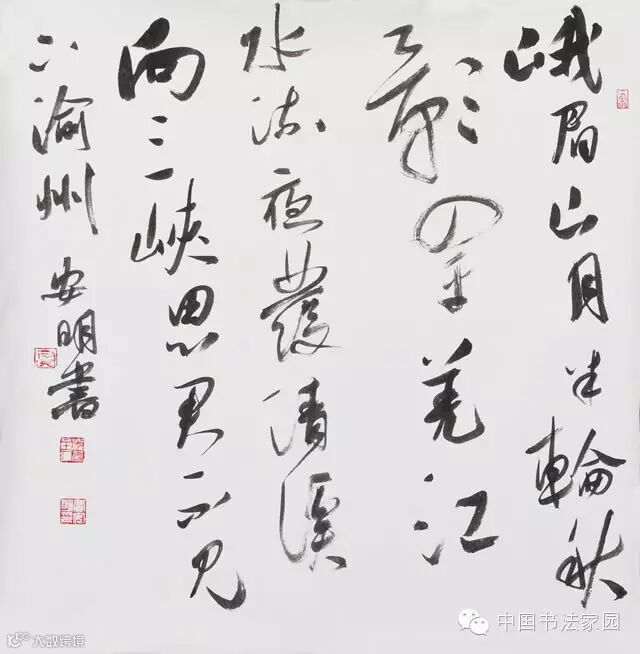 峨眉山月半輪秋
影入平羌江
水流夜發清溪
向三峽思君不見
下渝州 安明書
中国书法家园
大数跨境